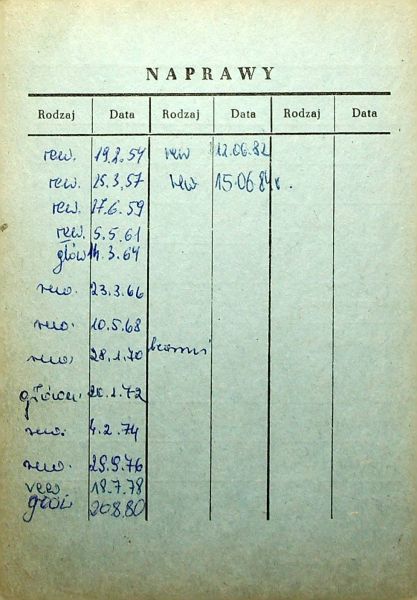 NAPRAWY
Rodzaj Data Rodzaj Data Rodzaj Data
rew. 19.2.54 rew 12.06.82
rew. 25.3.57 rew 15.06.84 r.
rew. 17.6.59
rew. 5.5.61
głów 14.3.64
rew. 23.3.66
rew. 10.5.68
rew. 28.1.70
główn. 20.1.72
rew. 4.2.74
rew. 25.9.76
rew 18.7.78
głów 20.8.80